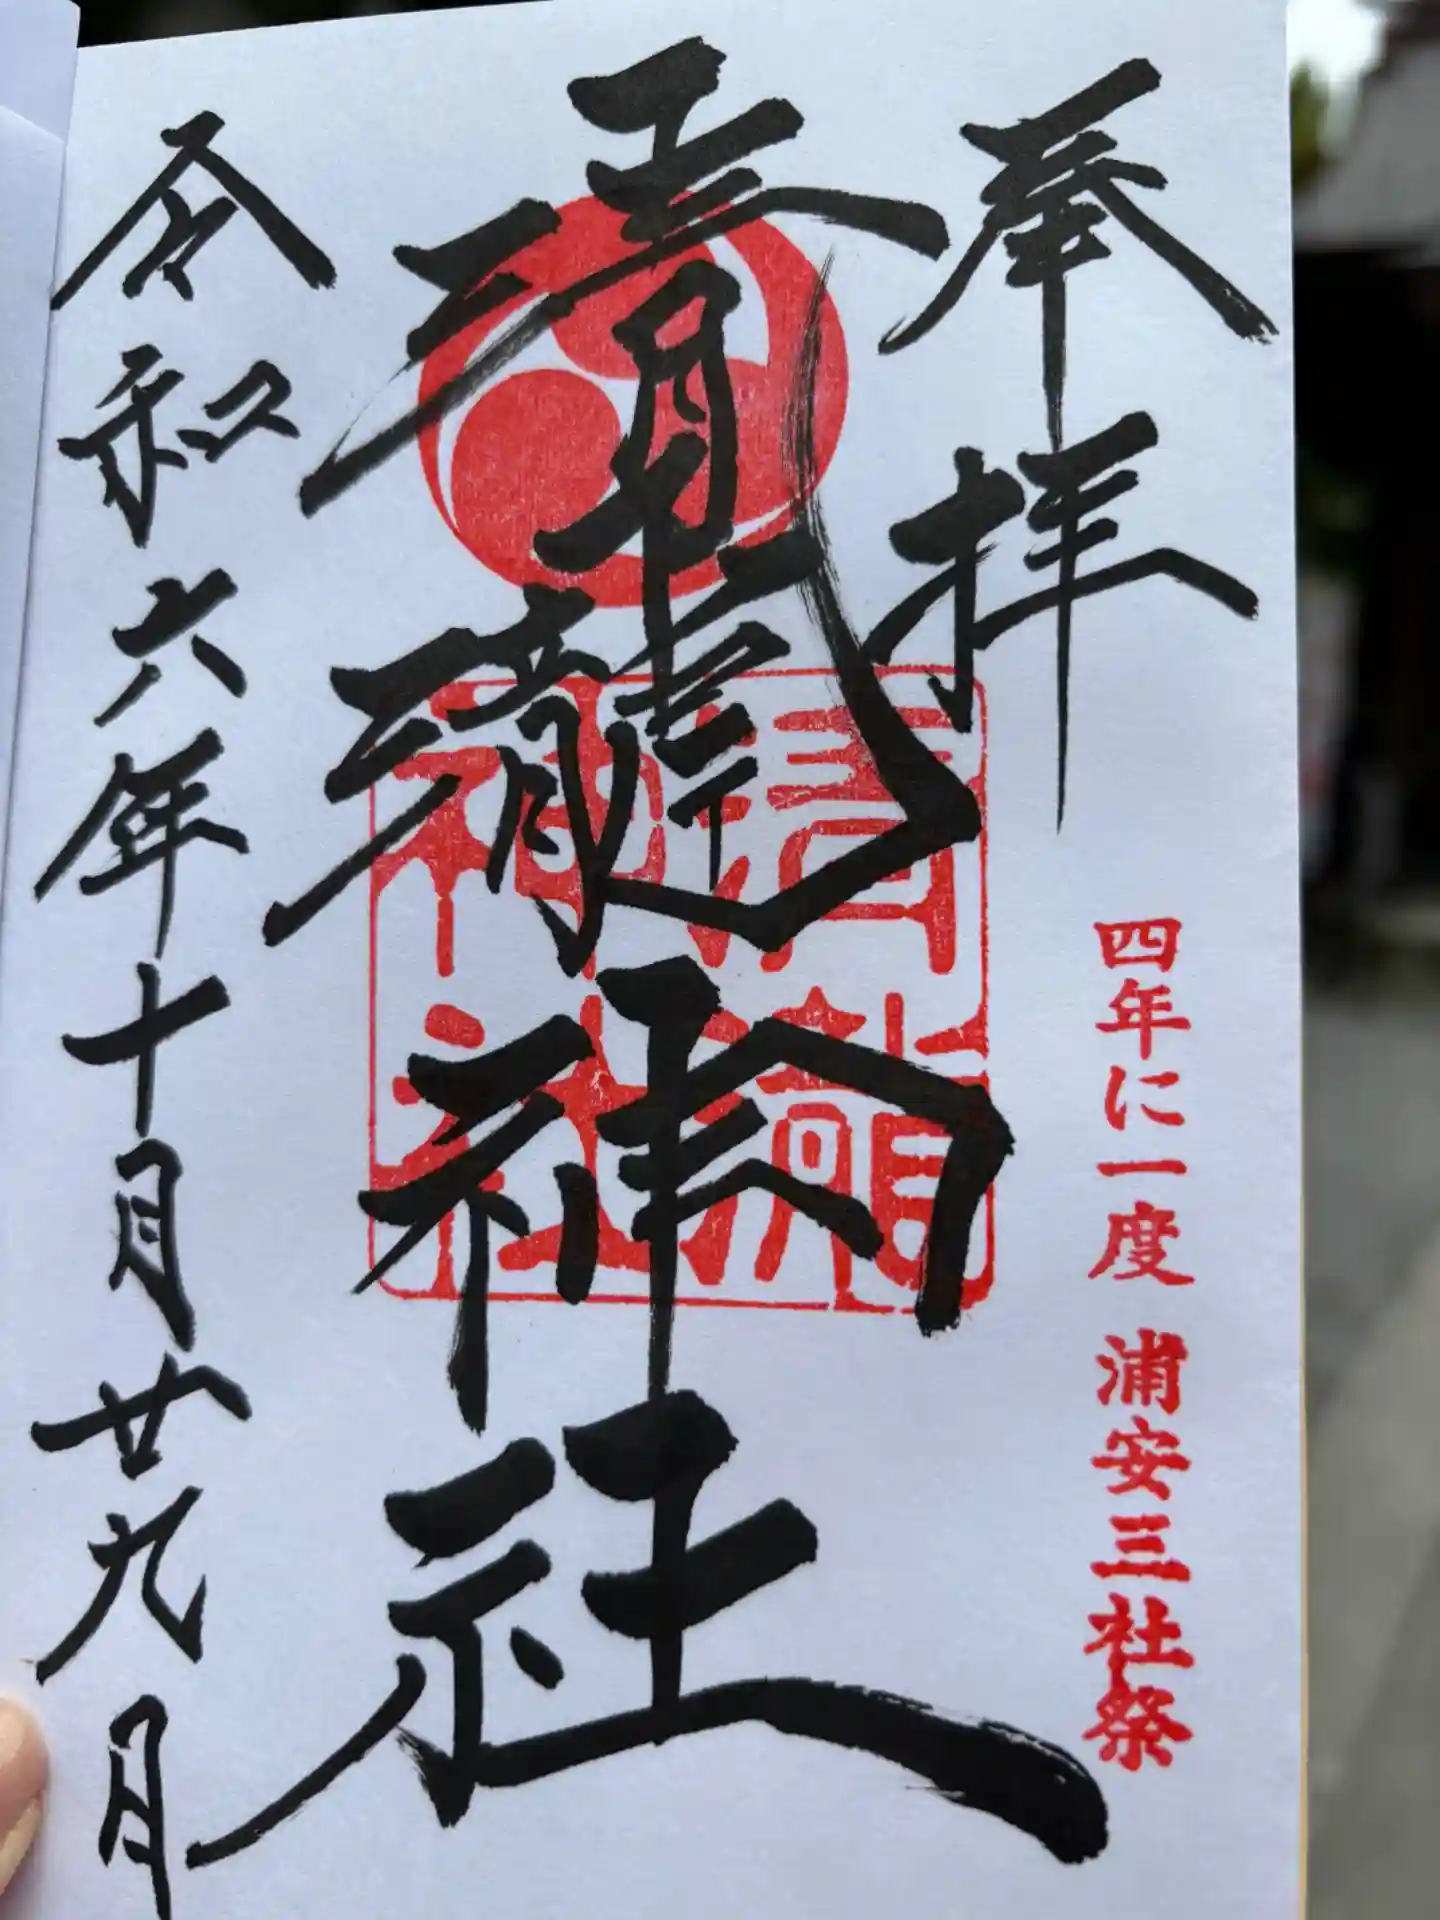 奉拝
四年に一度 浦安三社祭
清瀧神社
清瀧
神社
令和六年十月廿九日